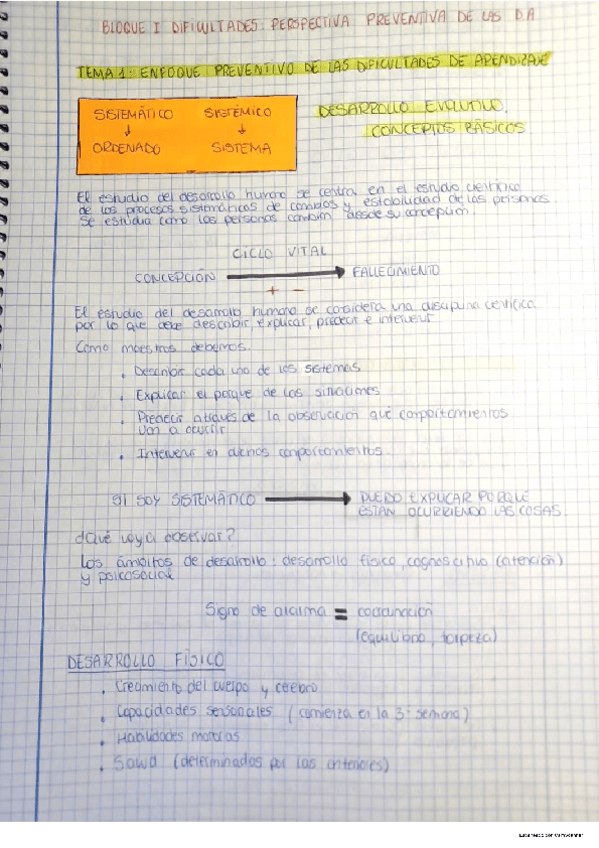 BLOQUE I DIFICULTADES: PERSPECTIVA PREVENTIVA DE LAS D.A
TEMA 1: ENFOQUE PREVENTIVO DE LAS DIFICULTADES DE APENDIZAJE
SISTEMÁTICO SISTÉMICO
ORDENADO SISTEMA
DESARROLLO EVOLUTIVO.
CONCEPTOS BÁSICOS
El estudio del desarrollo humano se centra en el estudio científico
de los procesos sistemáticos de cambios y estabilidad de las personas.
Se estudia como las personas cambian desde su concepción.
CICLO VITAL
CONCEPCIÓN FALLECIMIENTO
+ -
El estudio del desarrollo humano se considera una disciplina científica
por lo que debe describir, explicar, predecir e intervenir
Como maestros debemos:
. Describir cada uno de los sistemas
. Explicar el porque de las situaciones
. Predecir através de la observación qué comportamientos
van a ocurrir
. Intervenir en dichos comportamientos.
SI SOY SISTEMÁTICO PUEDO EXPLICAR PORQUE
ESTÁN OCURRIENDO LAS COSAS.
¿Qué voy a observar?
Los ámbitos de desarrollo: desarrollo físico, cognoscitivo (atención)
y psicosocial
Signo de alarma = coordinación
(equilibrio, torpeza)
DESARROLLO FÍSICO
. Crecimiento del cuerpo y cerebro
. Capacidades sensoriales (comienza en la 3ª semana)
. Habilidades motoras
. Salud (determinados por las anteriores)